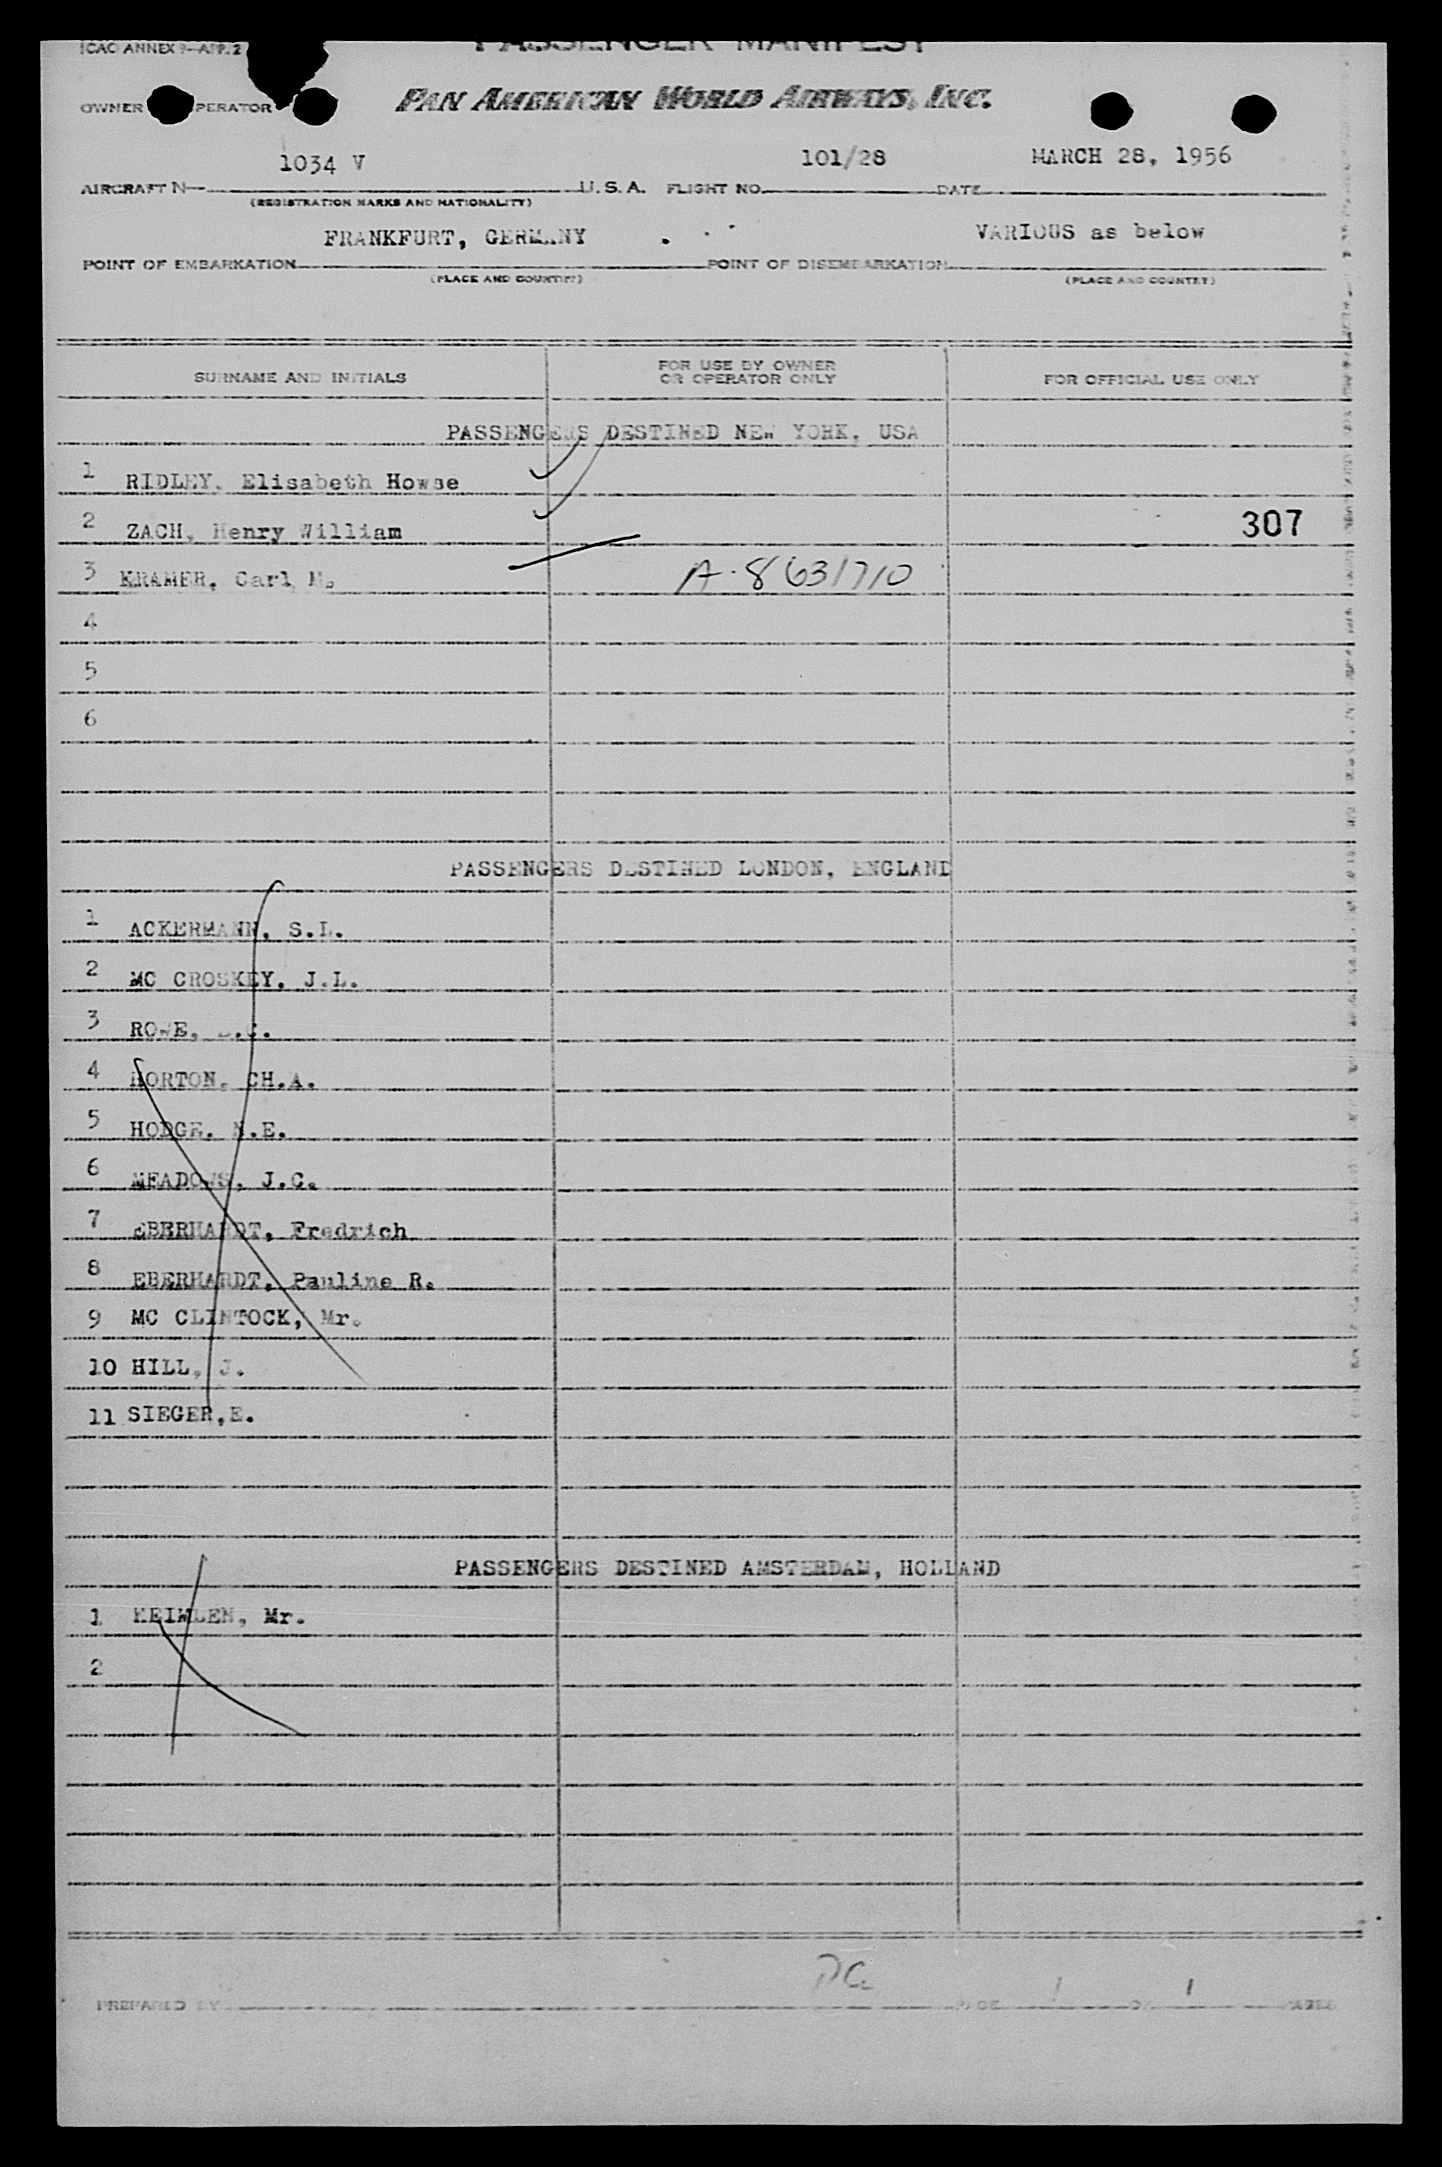 ICAO ANNEX 9—APP. 2
PASSENGER MANIFEST
OWNER OPERATOR PAN AMERICAN WORLD AIRWAYS, INC.
1034 V 101/28 MARCH 28, 1956
AIRCRAFT N— U. S. A. FLIGHT NO. DATE
(REGISTRATION MARKS AND NATIONALITY)
FRANKFURT, GERMANY VARIOUS as below
POINT OF EMBARKATION POINT OF DISEMBARKATION
(PLACE AND COUNTRY) (PLACE AND COUNTRY)
SURNAME AND INITIALS FOR USE BY OWNER OR OPERATOR ONLY FOR OFFICIAL USE ONLY
PASSENGERS DESTINED NEW YORK, USA
1 RIDLEY, Elisabeth Howse
2 ZACH, Henry William 307
3 KRAMER, Carl M. A-8631710
4
5
6
PASSENGERS DESTINED LONDON, ENGLAND
1 ACKERMANN, S.L.
2 MC CROSKEY, J.L.
3 ROWE,
4 HORTON, CH.A.
5 HODGE, N.E.
6 MEADOWS, J.C.
7 EBERHARDT, Fredrich
8 EBERHARDT, Pauline R.
9 MC CLINTOCK, Mr.
10 HILL, J.
11 SIEGER,E.
PASSENGERS DESTINED AMSTERDAM, HOLLAND
1 Mr.
2
PREPARED BY PAGE 1 OF 1 PAGES